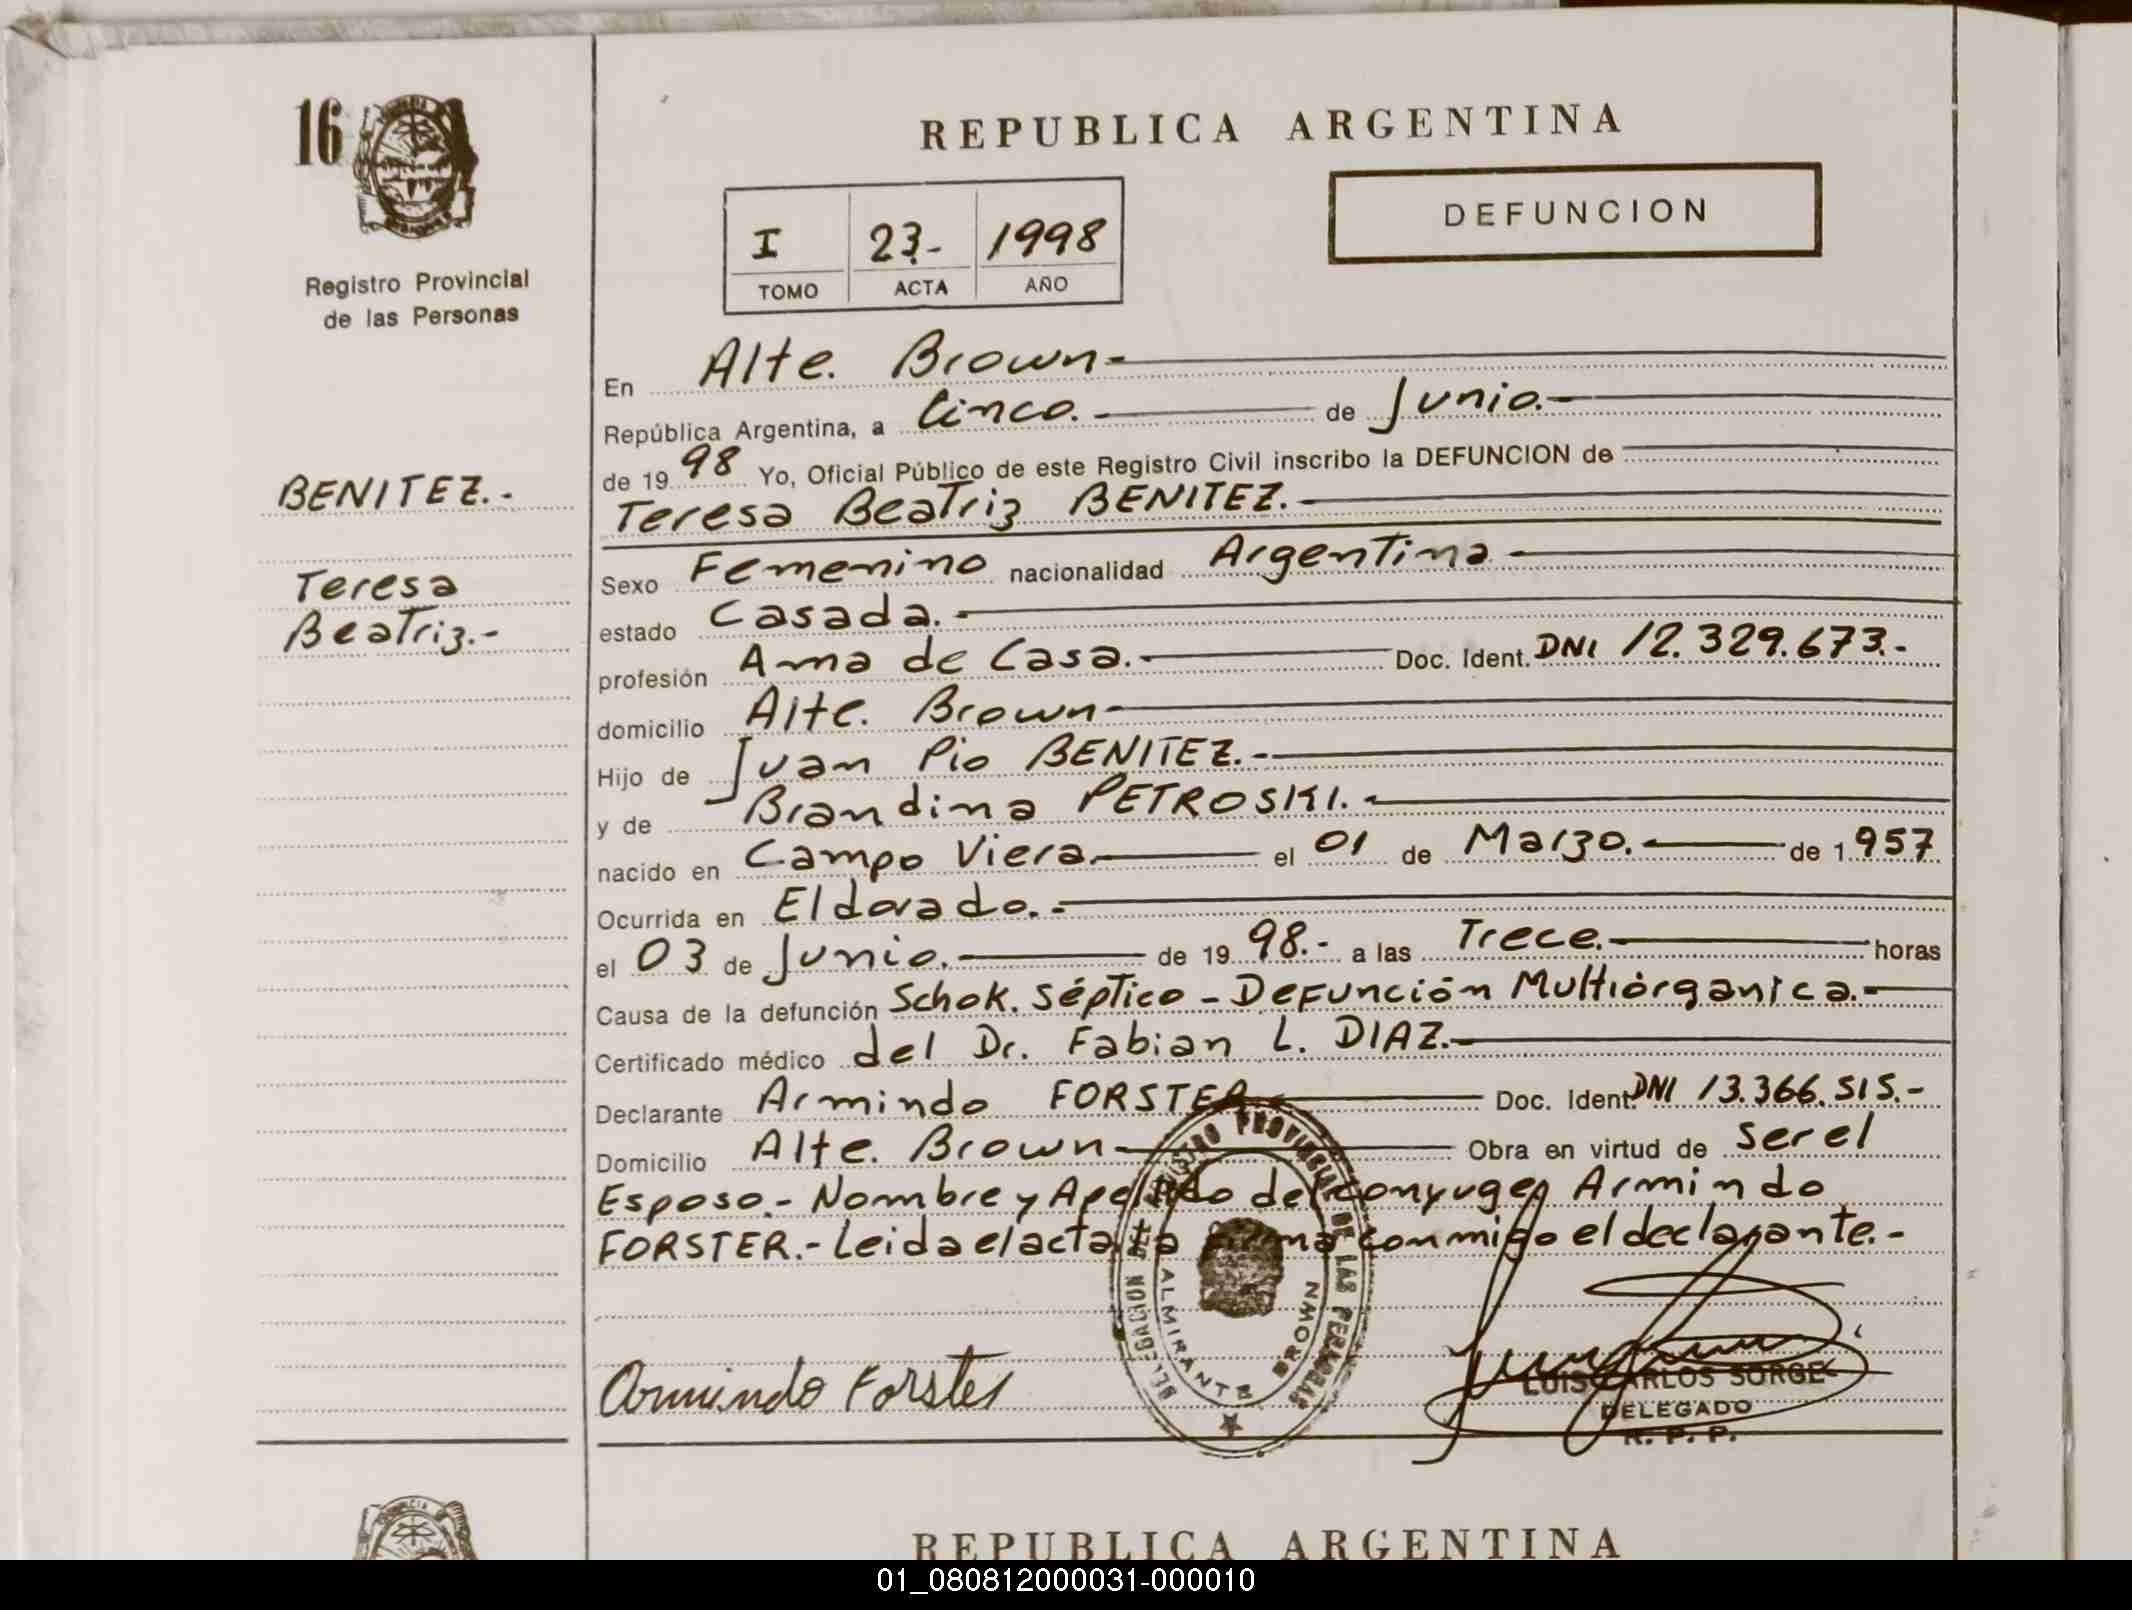 16
Registro Provincial
de las Personas
REPUBLICA ARGENTINA
DEFUNCION
I 23.- 1998
TOMO ACTA AÑO
En Alte. Brown-
República Argentina, a Cinco. - de Junio.-
de 19 98 Yo, Oficial Público de este Registro Civil inscribo la DEFUNCION de
BENITEZ.-
Teresa Beatriz BENITEZ.-
Teresa
Beatriz.-
Sexo Femenino nacionalidad Argentina -
estado Casada.-
profesión Ama de Casa.- Doc. Ident. DNI 12.329.673.-
domicilio Alte. Brown-
Hijo de Juan Pio BENITEZ.-
y de Brandina PETROSKI.-
nacido en Campo Viera.- el 01 de Marzo.- de 1 957
Ocurrida en Eldorado.-
el 03 de Junio.- de 19 98.- a las Trece.- horas
Causa de la defunción Schok. Séptico - Defunción Multiórganica.-
Certificado médico del Dr. Fabian L. DIAZ.-
Declarante Armindo FORSTER- Doc. Ident. DNI 13.366.515.-
Domicilio Alte. Brown- Obra en virtud de ser el
Esposo.- Nombre y Apellido del conyuge, Armindo
FORSTER.- Leida el acta la firma conmigo el declarante.-
DELEGACION DEL REGISTRO PROVINCIAL DE LAS PERSONAS
ALMIRANTE BROWN
Armindo Forster
LUIS CARLOS SORGE
DELEGADO
R. P. P.
REPUBLICA ARGENTINA
01_080812000031-000010